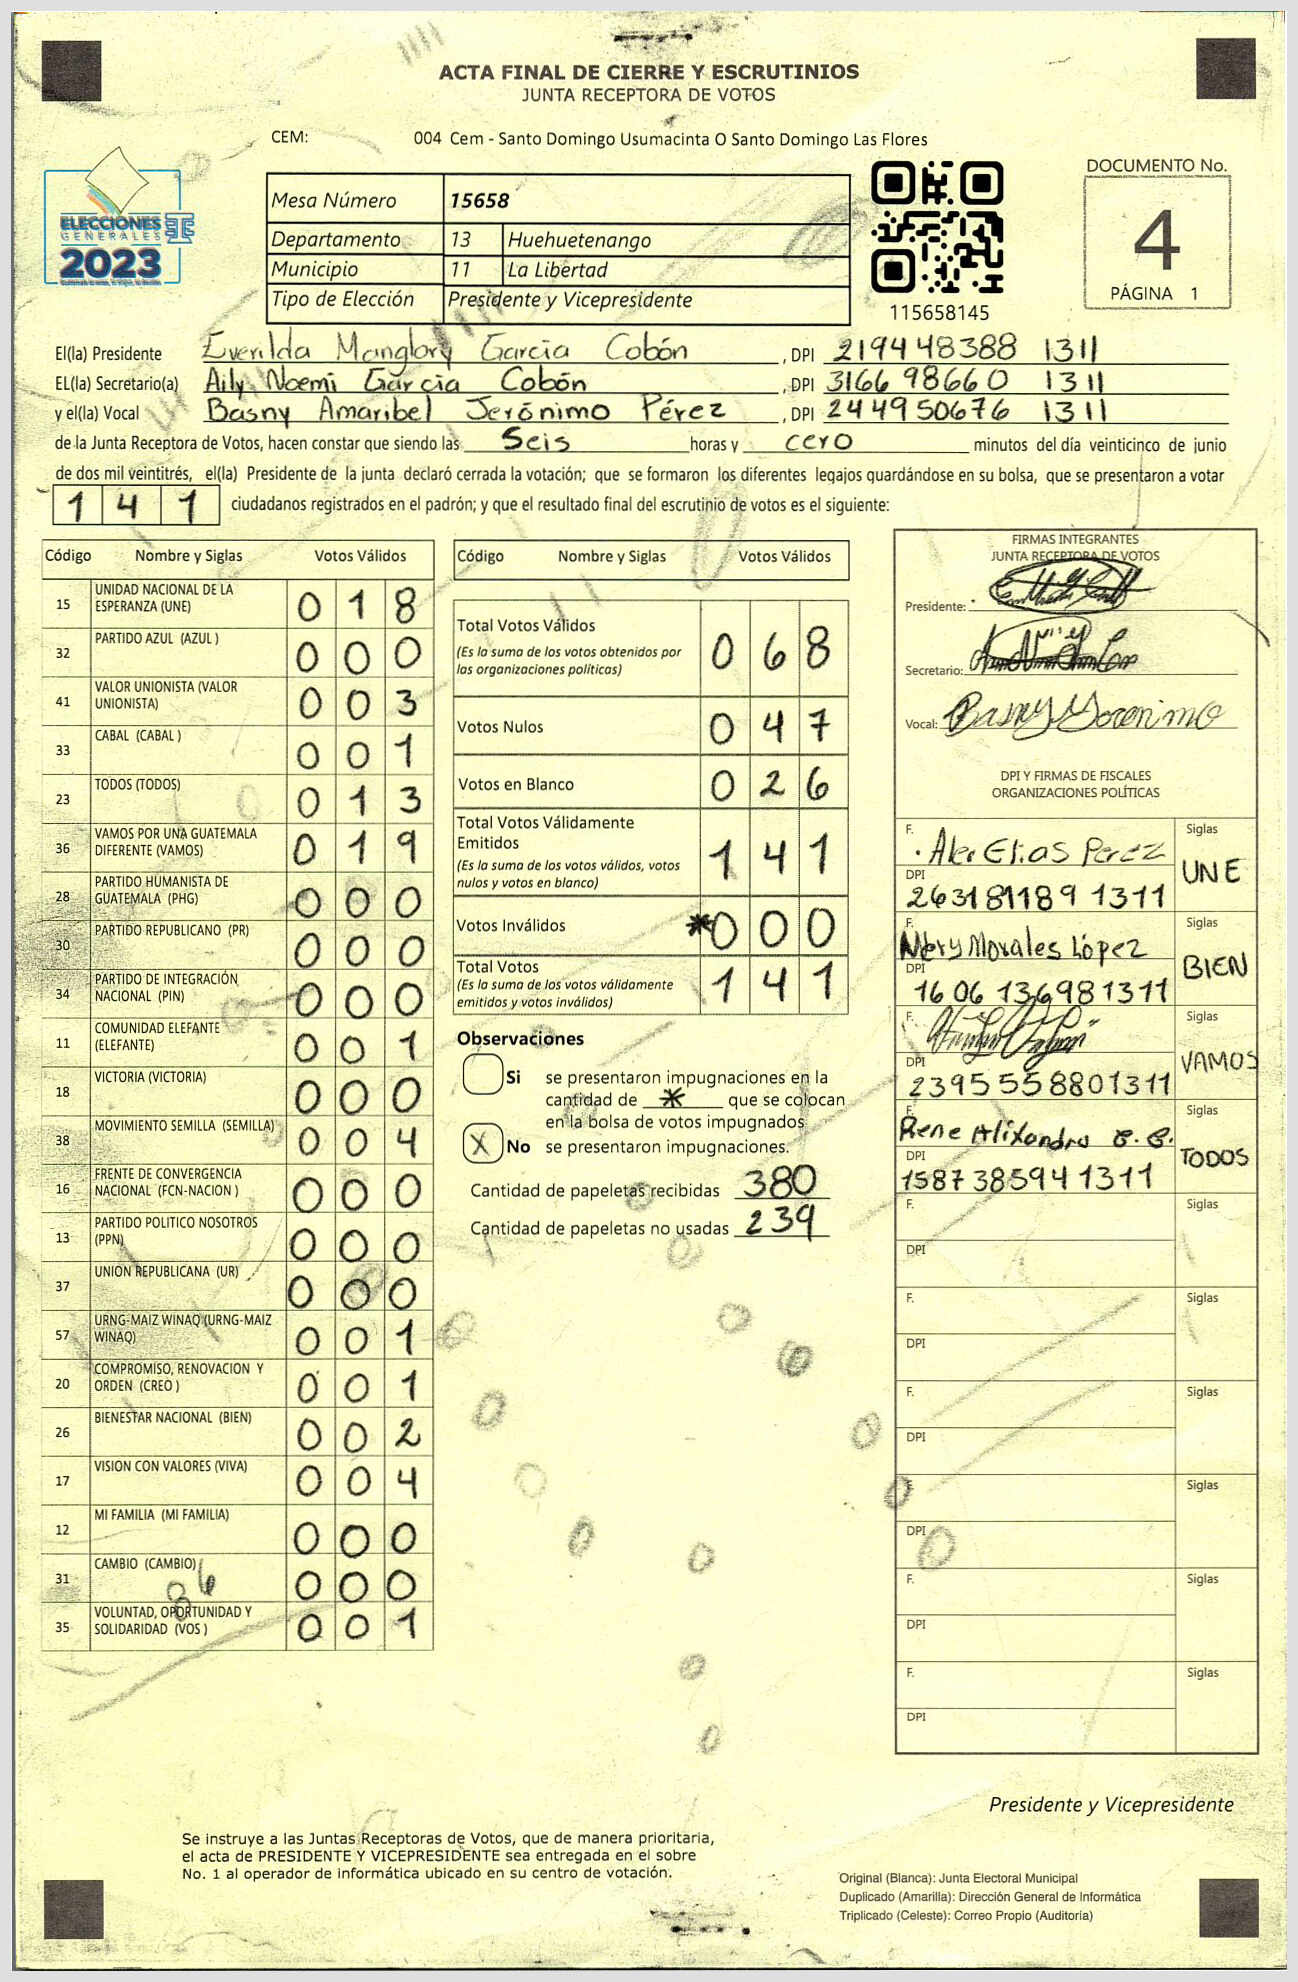 ACTA FINAL DE CIERRE Y ESCRUTINIOS
JUNTA RECEPTORA DE VOTOS
CEM: 004 Cem - Santo Domingo Usumacinta O Santo Domingo Las Flores
ELECCIONES
GENERALES
2023
Mesa Número 15658
Departamento 13 Huehuetenango
Municipio 11 La Libertad
Tipo de Elección Presidente y Vicepresidente
115658145
DOCUMENTO No.
4
PÁGINA 1
El(la) Presidente Everilda Manglory Garcia Cobón , DPI 219448388 1311
EL(la) Secretario(a) Aily Noemi Garcia Cobón , DPI 316698660 1311
y el(la) Vocal Basny Amaribel Jerónimo Pérez , DPI 244950676 1311
de la Junta Receptora de Votos, hacen constar que siendo las Seis horas y cero minutos del día veinticinco de junio
de dos mil veintitrés, el(la) Presidente de la junta declaró cerrada la votación; que se formaron los diferentes legajos guardándose en su bolsa, que se presentaron a votar
1 4 1 ciudadanos registrados en el padrón; y que el resultado final del escrutinio de votos es el siguiente:
Código Nombre y Siglas Votos Válidos
15 UNIDAD NACIONAL DE LA ESPERANZA (UNE) 0 1 8
32 PARTIDO AZUL (AZUL ) 0 0 0
41 VALOR UNIONISTA (VALOR UNIONISTA) 0 0 3
33 CABAL (CABAL ) 0 0 1
23 TODOS (TODOS) 0 1 3
36 VAMOS POR UNA GUATEMALA DIFERENTE (VAMOS) 0 1 9
28 PARTIDO HUMANISTA DE GUATEMALA (PHG) 0 0 0
30 PARTIDO REPUBLICANO (PR) 0 0 0
34 PARTIDO DE INTEGRACIÓN NACIONAL (PIN) 0 0 0
11 COMUNIDAD ELEFANTE (ELEFANTE) 0 0 1
18 VICTORIA (VICTORIA) 0 0 0
38 MOVIMIENTO SEMILLA (SEMILLA) 0 0 4
16 FRENTE DE CONVERGENCIA NACIONAL (FCN-NACION ) 0 0 0
13 PARTIDO POLITICO NOSOTROS (PPN) 0 0 0
37 UNION REPUBLICANA (UR) 0 0 0
57 URNG-MAIZ WINAQ (URNG-MAIZ WINAQ) 0 0 1
20 COMPROMISO, RENOVACION Y ORDEN (CREO ) 0 0 1
26 BIENESTAR NACIONAL (BIEN) 0 0 2
17 VISION CON VALORES (VIVA) 0 0 4
12 MI FAMILIA (MI FAMILIA) 0 0 0
31 CAMBIO (CAMBIO) 0 0 0
35 VOLUNTAD, OPORTUNIDAD Y SOLIDARIDAD (VOS ) 0 0 1
Código Nombre y Siglas Votos Válidos
Total Votos Válidos 0 6 8
(Es la suma de los votos obtenidos por
las organizaciones políticas)
Votos Nulos 0 4 7
Votos en Blanco 0 2 6
Total Votos Válidamente
Emitidos 1 4 1
(Es la suma de los votos válidos, votos
nulos y votos en blanco)
Votos Inválidos *0 0 0
Total Votos 1 4 1
(Es la suma de los votos válidamente
emitidos y votos inválidos)
Observaciones
Si se presentaron impugnaciones en la
cantidad de * que se colocan
en la bolsa de votos impugnados
X No se presentaron impugnaciones.
Cantidad de papeletas recibidas 380
Cantidad de papeletas no usadas 239
FIRMAS INTEGRANTES
JUNTA RECEPTORA DE VOTOS
Presidente:
Secretario:
Vocal: Basny Jeronimo
DPI Y FIRMAS DE FISCALES
ORGANIZACIONES POLÍTICAS
F. Alex Elias Perez Siglas
DPI 263181189 1311 UNE
F. Nery Morales López Siglas
DPI 1606 136981311 BIEN
F. Siglas
DPI 2395558801311 VAMOS
F. Rene Alixandro Siglas
DPI 1587385941311 TODOS
F. Siglas
DPI
F. Siglas
DPI
F. Siglas
DPI
F. Siglas
DPI
F. Siglas
DPI
F. Siglas
DPI
Presidente y Vicepresidente
Se instruye a las Juntas Receptoras de Votos, que de manera prioritaria,
el acta de PRESIDENTE Y VICEPRESIDENTE sea entregada en el sobre
No. 1 al operador de informática ubicado en su centro de votación.
Original (Blanca): Junta Electoral Municipal
Duplicado (Amarilla): Dirección General de Informática
Triplicado (Celeste): Correo Propio (Auditoría)